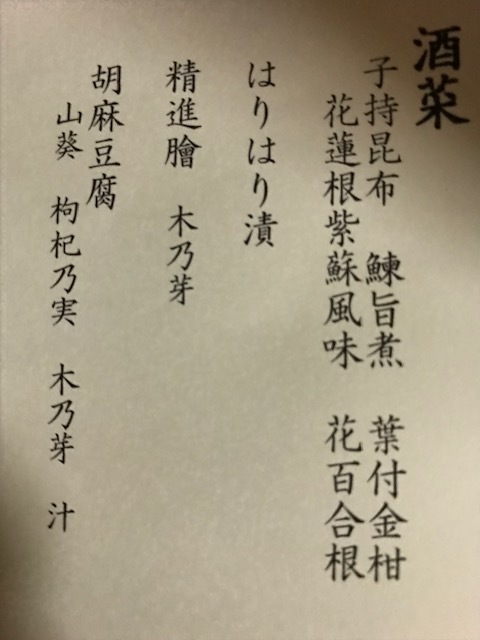 酒菜
子持昆布　鰊旨煮　葉付金柑
花蓮根紫蘇風味　花百合根
はりはり漬
精進膾　木乃芽
胡麻豆腐
山葵　枸杞乃実　木乃芽　汁